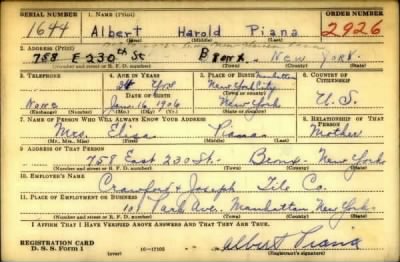 SERIAL NUMBER 1. NAME (Print) ORDER NUMBER
1644 Albert Harold Piana 2926
(First) (Middle) (Last)
2. ADDRESS (Print)
758 E 230th St Bronx New York
(Number and street or R. F. D. number) (Town) (County) (State)
3. TELEPHONE 4. AGE IN YEARS 5. PLACE OF BIRTH 6. COUNTRY OF CITIZENSHIP
Manhattan
34 New York City
DATE OF BIRTH
None Jan. 16, 1906 New York U. S.
(Exchange) (Number) (Mo.) (Day) (Yr.) (State or country)
7. NAME OF PERSON WHO WILL ALWAYS KNOW YOUR ADDRESS 8. RELATIONSHIP OF THAT PERSON
Mrs. Elisa Mother
(Mr., Mrs., Miss) (First) (Middle) (Last)
9. ADDRESS OF THAT PERSON
758 East 230 St. Bronx New York
(Number and street or R. F. D. number) (Town) (County) (State)
10. EMPLOYER'S NAME
Crawford & Joseph Tile Co.
11. PLACE OF EMPLOYMENT OR BUSINESS
101 Park Ave. Manhattan New York
(Number and street or R. F. D. number) (Town) (County) (State)
I AFFIRM THAT I HAVE VERIFIED ABOVE ANSWERS AND THAT THEY ARE TRUE.
REGISTRATION CARD
D. S. S. Form 1 (over) Albert Piana
(Registrant's signature)